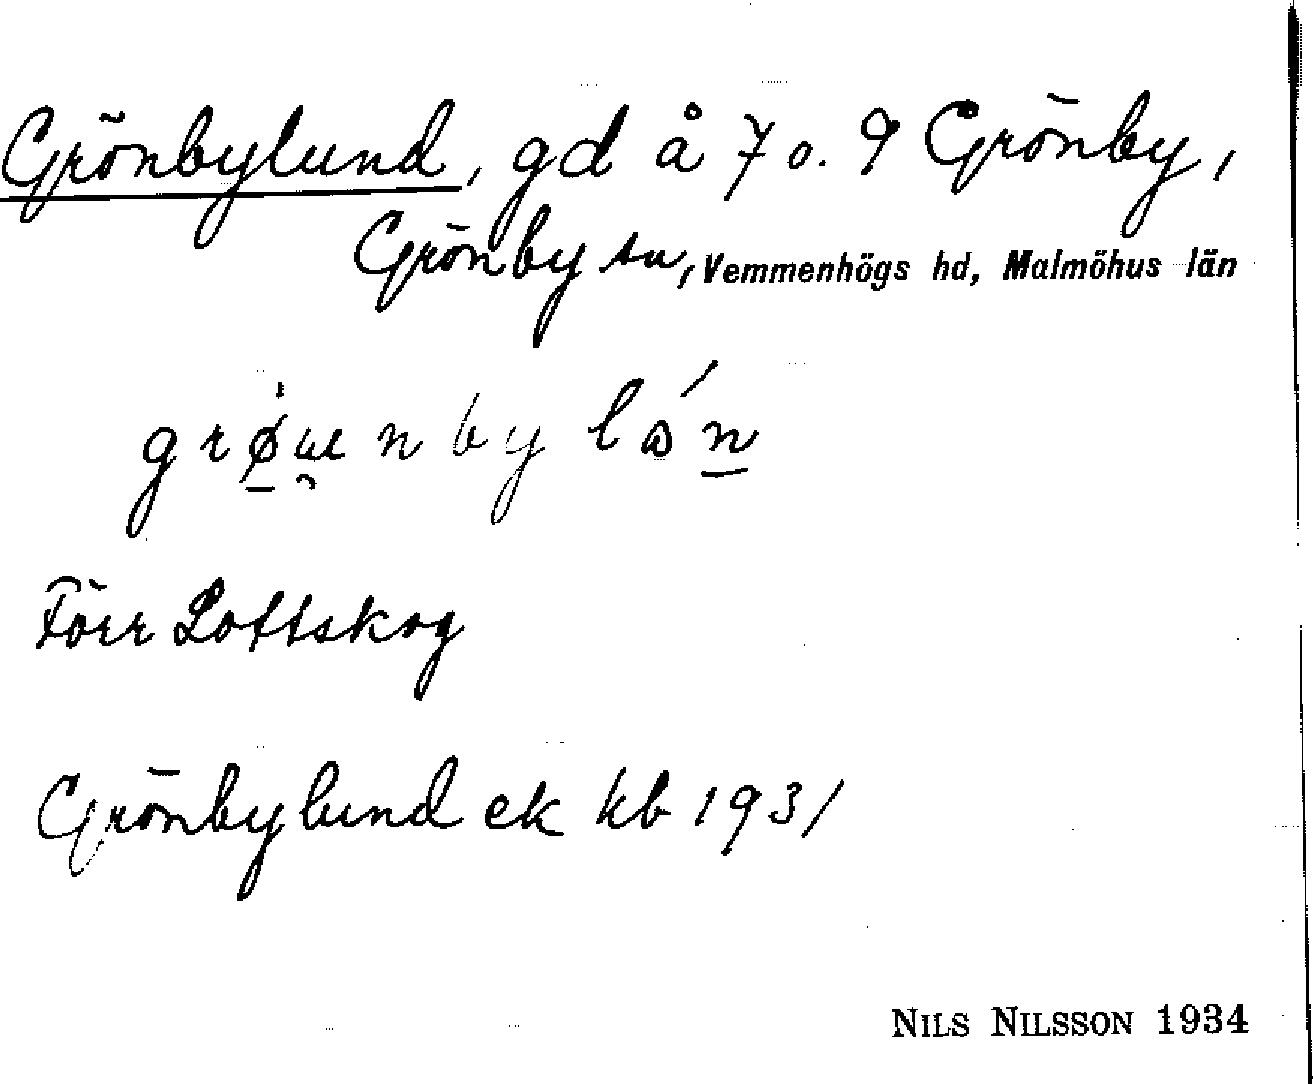 Grönbylund, gd å 7 o. 9 Grönby,
Grönby sn, Vemmenhögs hd, Malmöhus län
Förr Loftskog
Grönbylund ek kb 1931
NILS NILSSON 1934